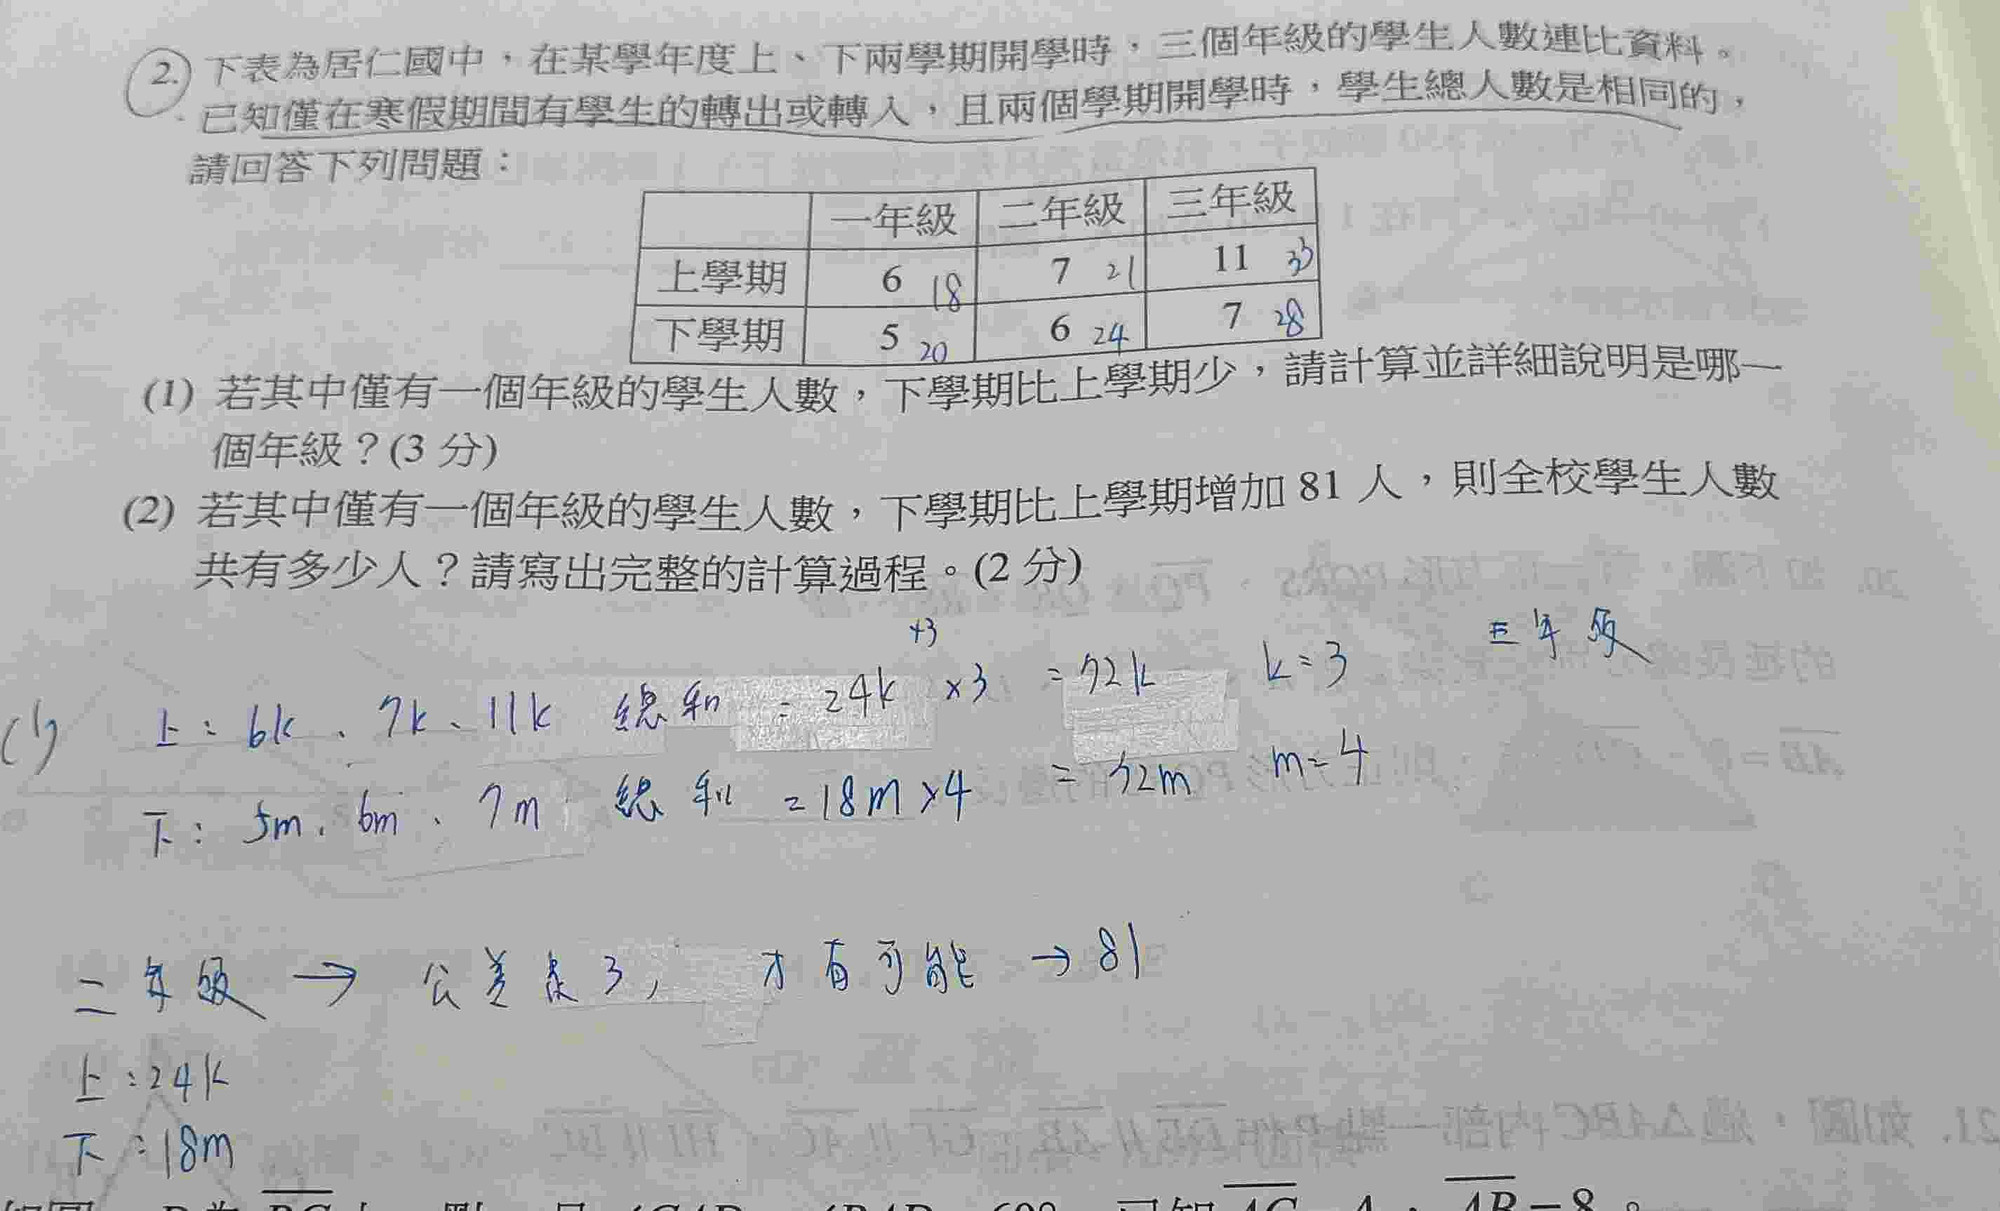 2. 下表為居仁國中，在某學年度上、下兩學期開學時，三個年級的學生人數連比資料。
已知僅在寒假期間有學生的轉出或轉入，且兩個學期開學時，學生總人數是相同的，
請回答下列問題：
一年級 二年級 三年級
上學期 6 18 7 21 11 33
下學期 5 20 6 24 7 28
(1) 若其中僅有一個年級的學生人數，下學期比上學期少，請計算並詳細說明是哪一
個年級？(3 分)
(2) 若其中僅有一個年級的學生人數，下學期比上學期增加 81 人，則全校學生人數
共有多少人？請寫出完整的計算過程。(2 分)
+3 三年級
(1) 上：6k、7k、11k 總和 = 24k ×3 = 72k k=3
下：5m、6m、7m 總和 = 18m ×4 = 72m m=4
二年級 → 公差是3, 才有可能 → 81
上：24k
下：18m